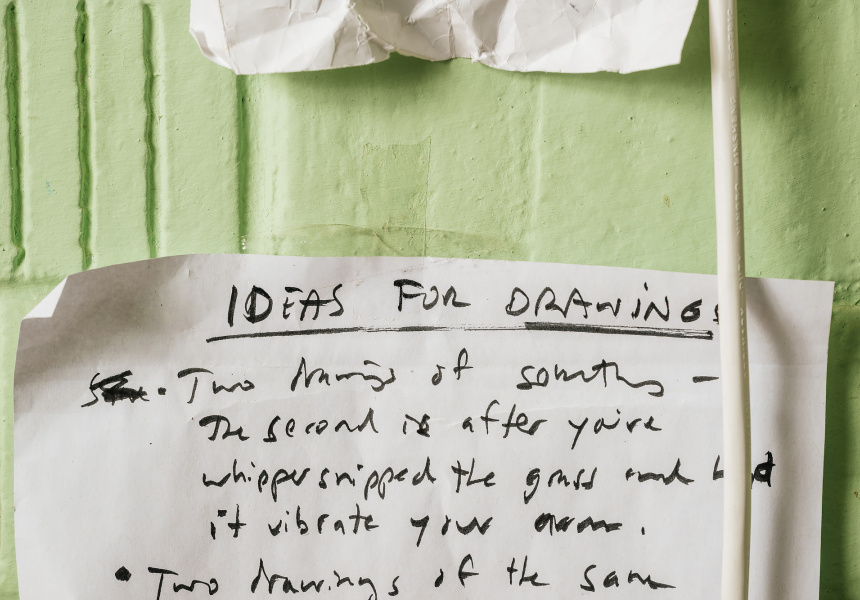 IDEAS FOR DRAWINGS
• Two drawings of something –
The second is after you've
whippersnipped the grass and had
it vibrate your arms.
• Two drawings of the same